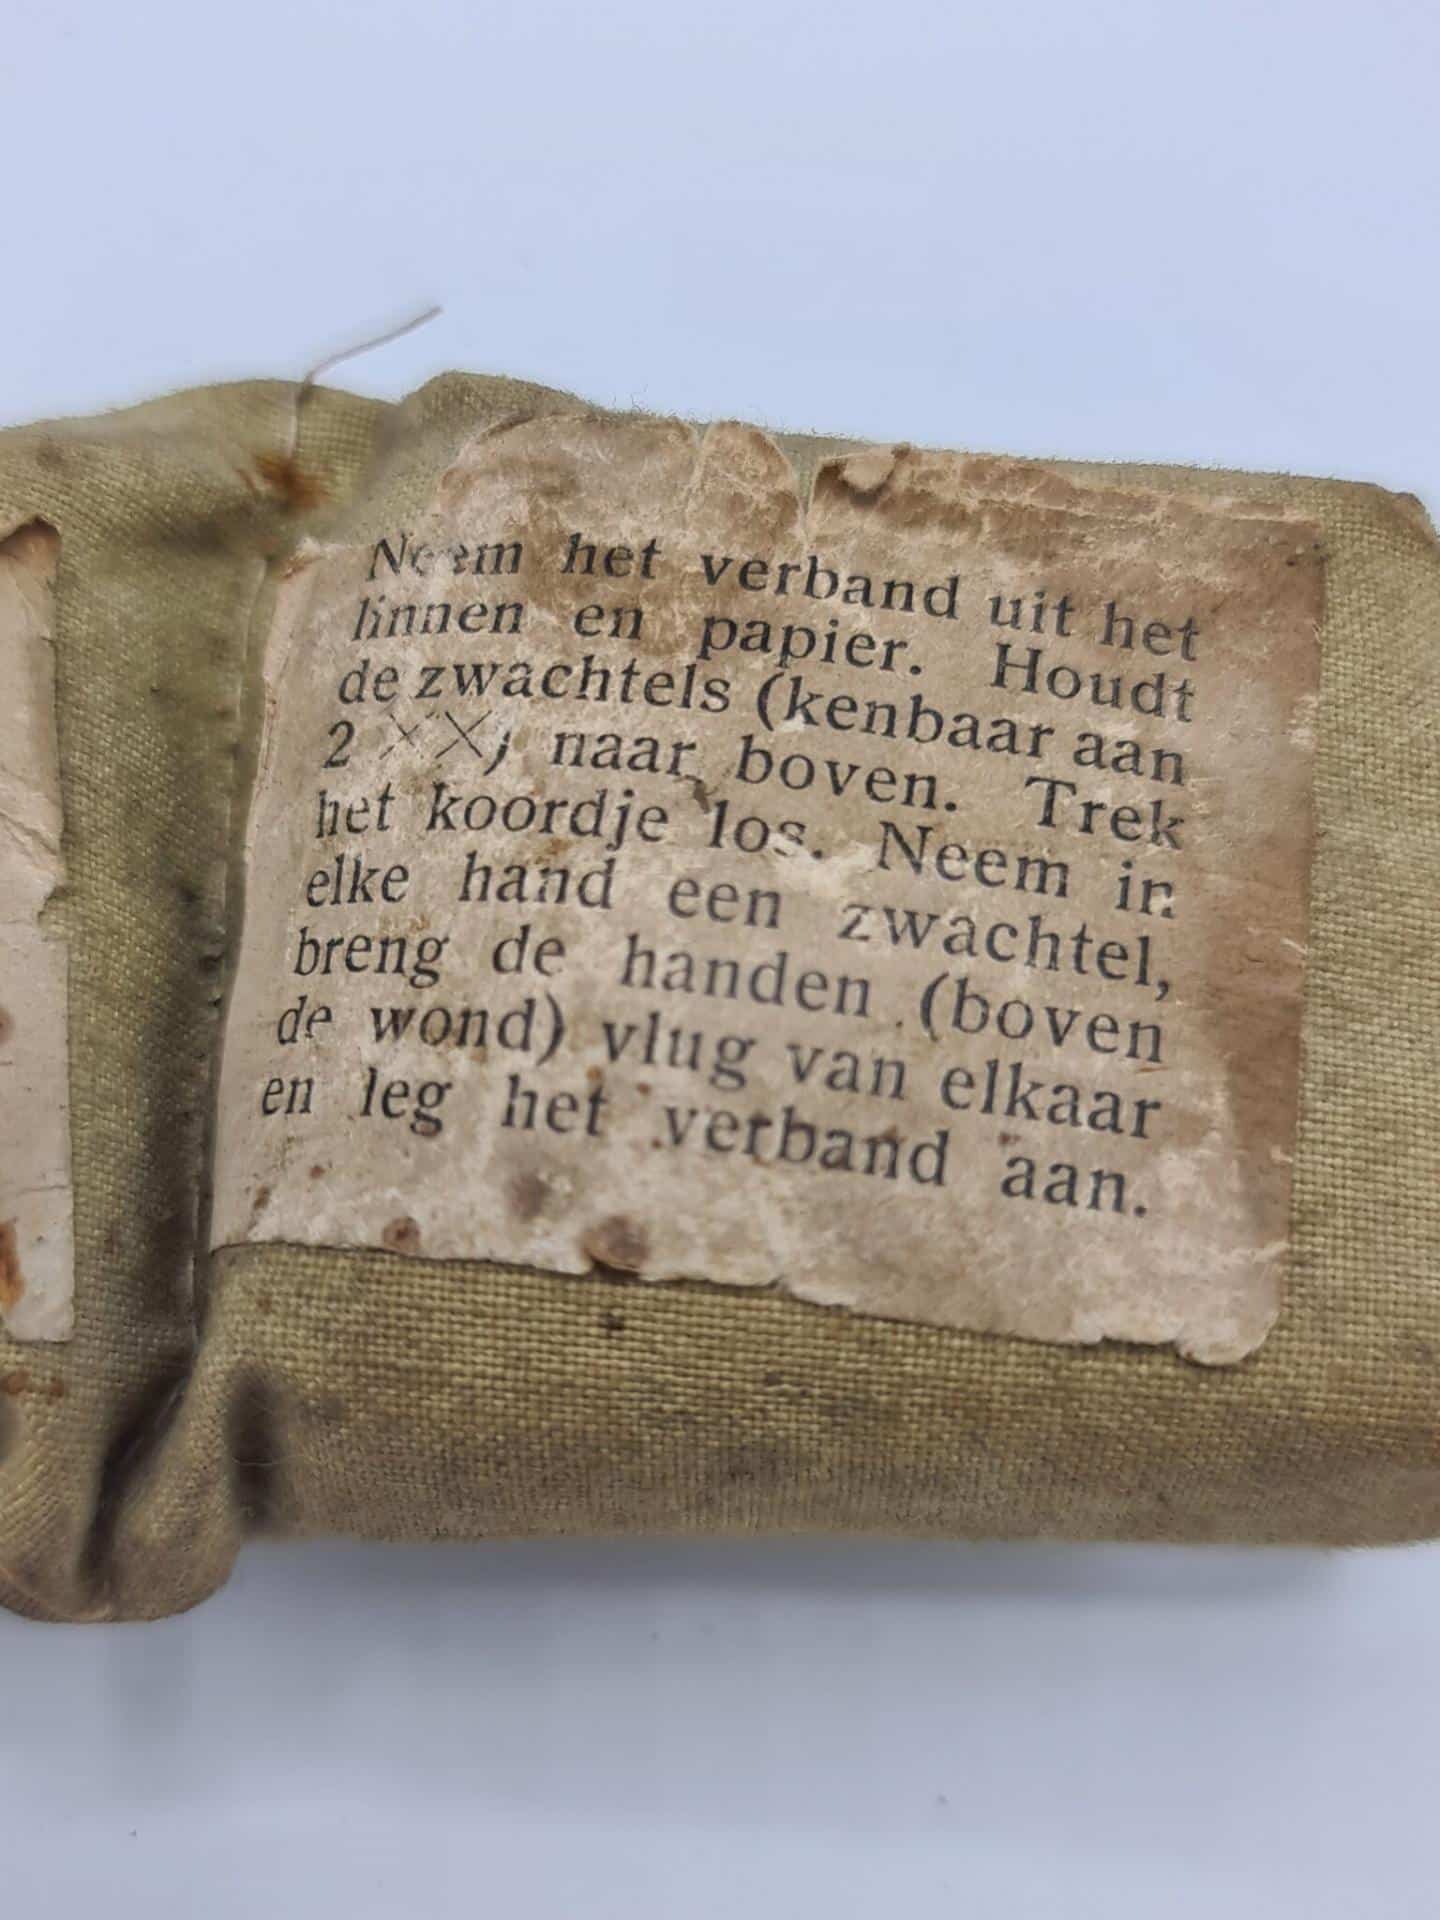 Neem het verband uit het
linnen en papier. Houdt
de zwachtels (kenbaar aan
2 ××) naar boven. Trek
het koordje los. Neem in
elke hand een zwachtel,
breng de handen (boven
de wond) vlug van elkaar
en leg het verband aan.